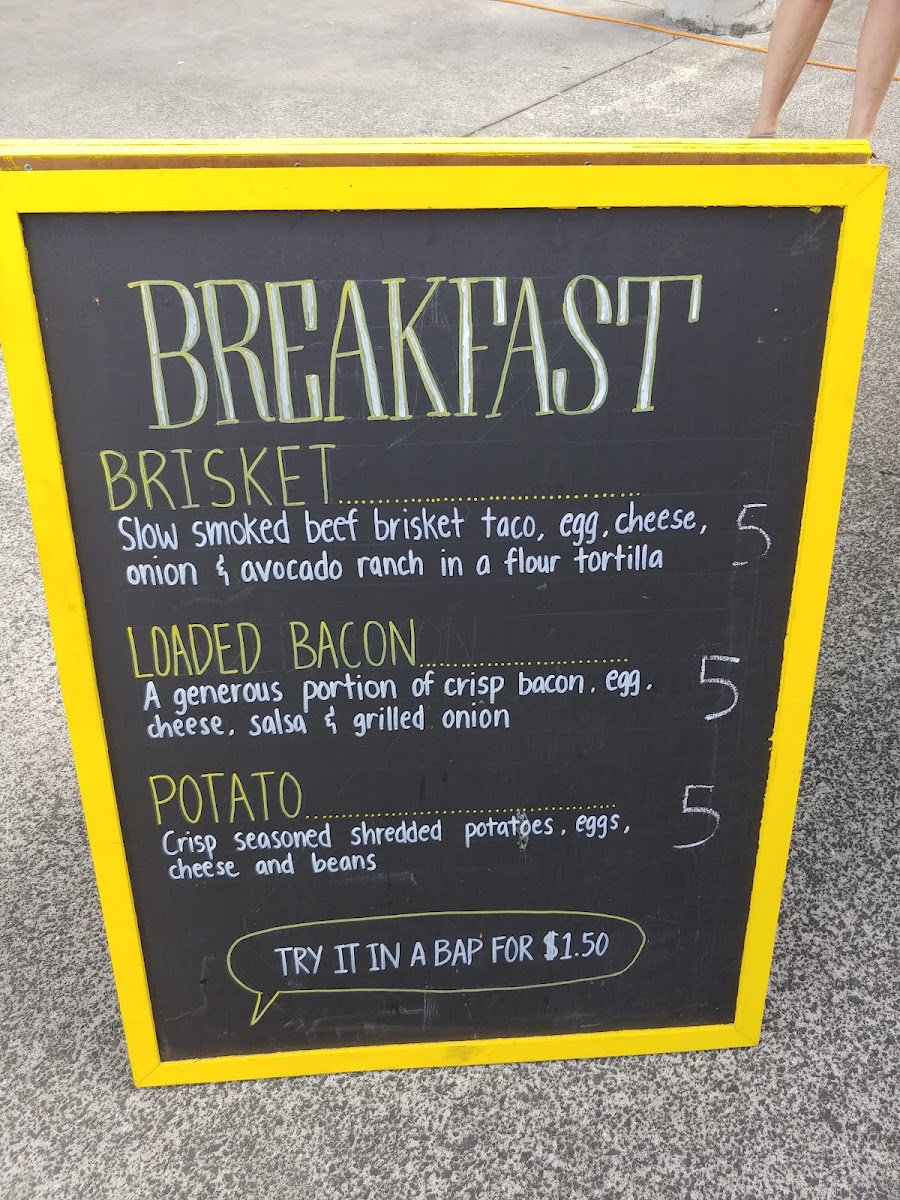 BREAKFAST
BRISKET.......................................
Slow smoked beef brisket taco, egg, cheese, 5
onion & avocado ranch in a flour tortilla
LOADED BACON..............................
A generous portion of crisp bacon, egg, 5
cheese, salsa & grilled onion
POTATO.............................................
Crisp seasoned shredded potatoes, eggs, 5
cheese and beans
TRY IT IN A BAP FOR $1.50